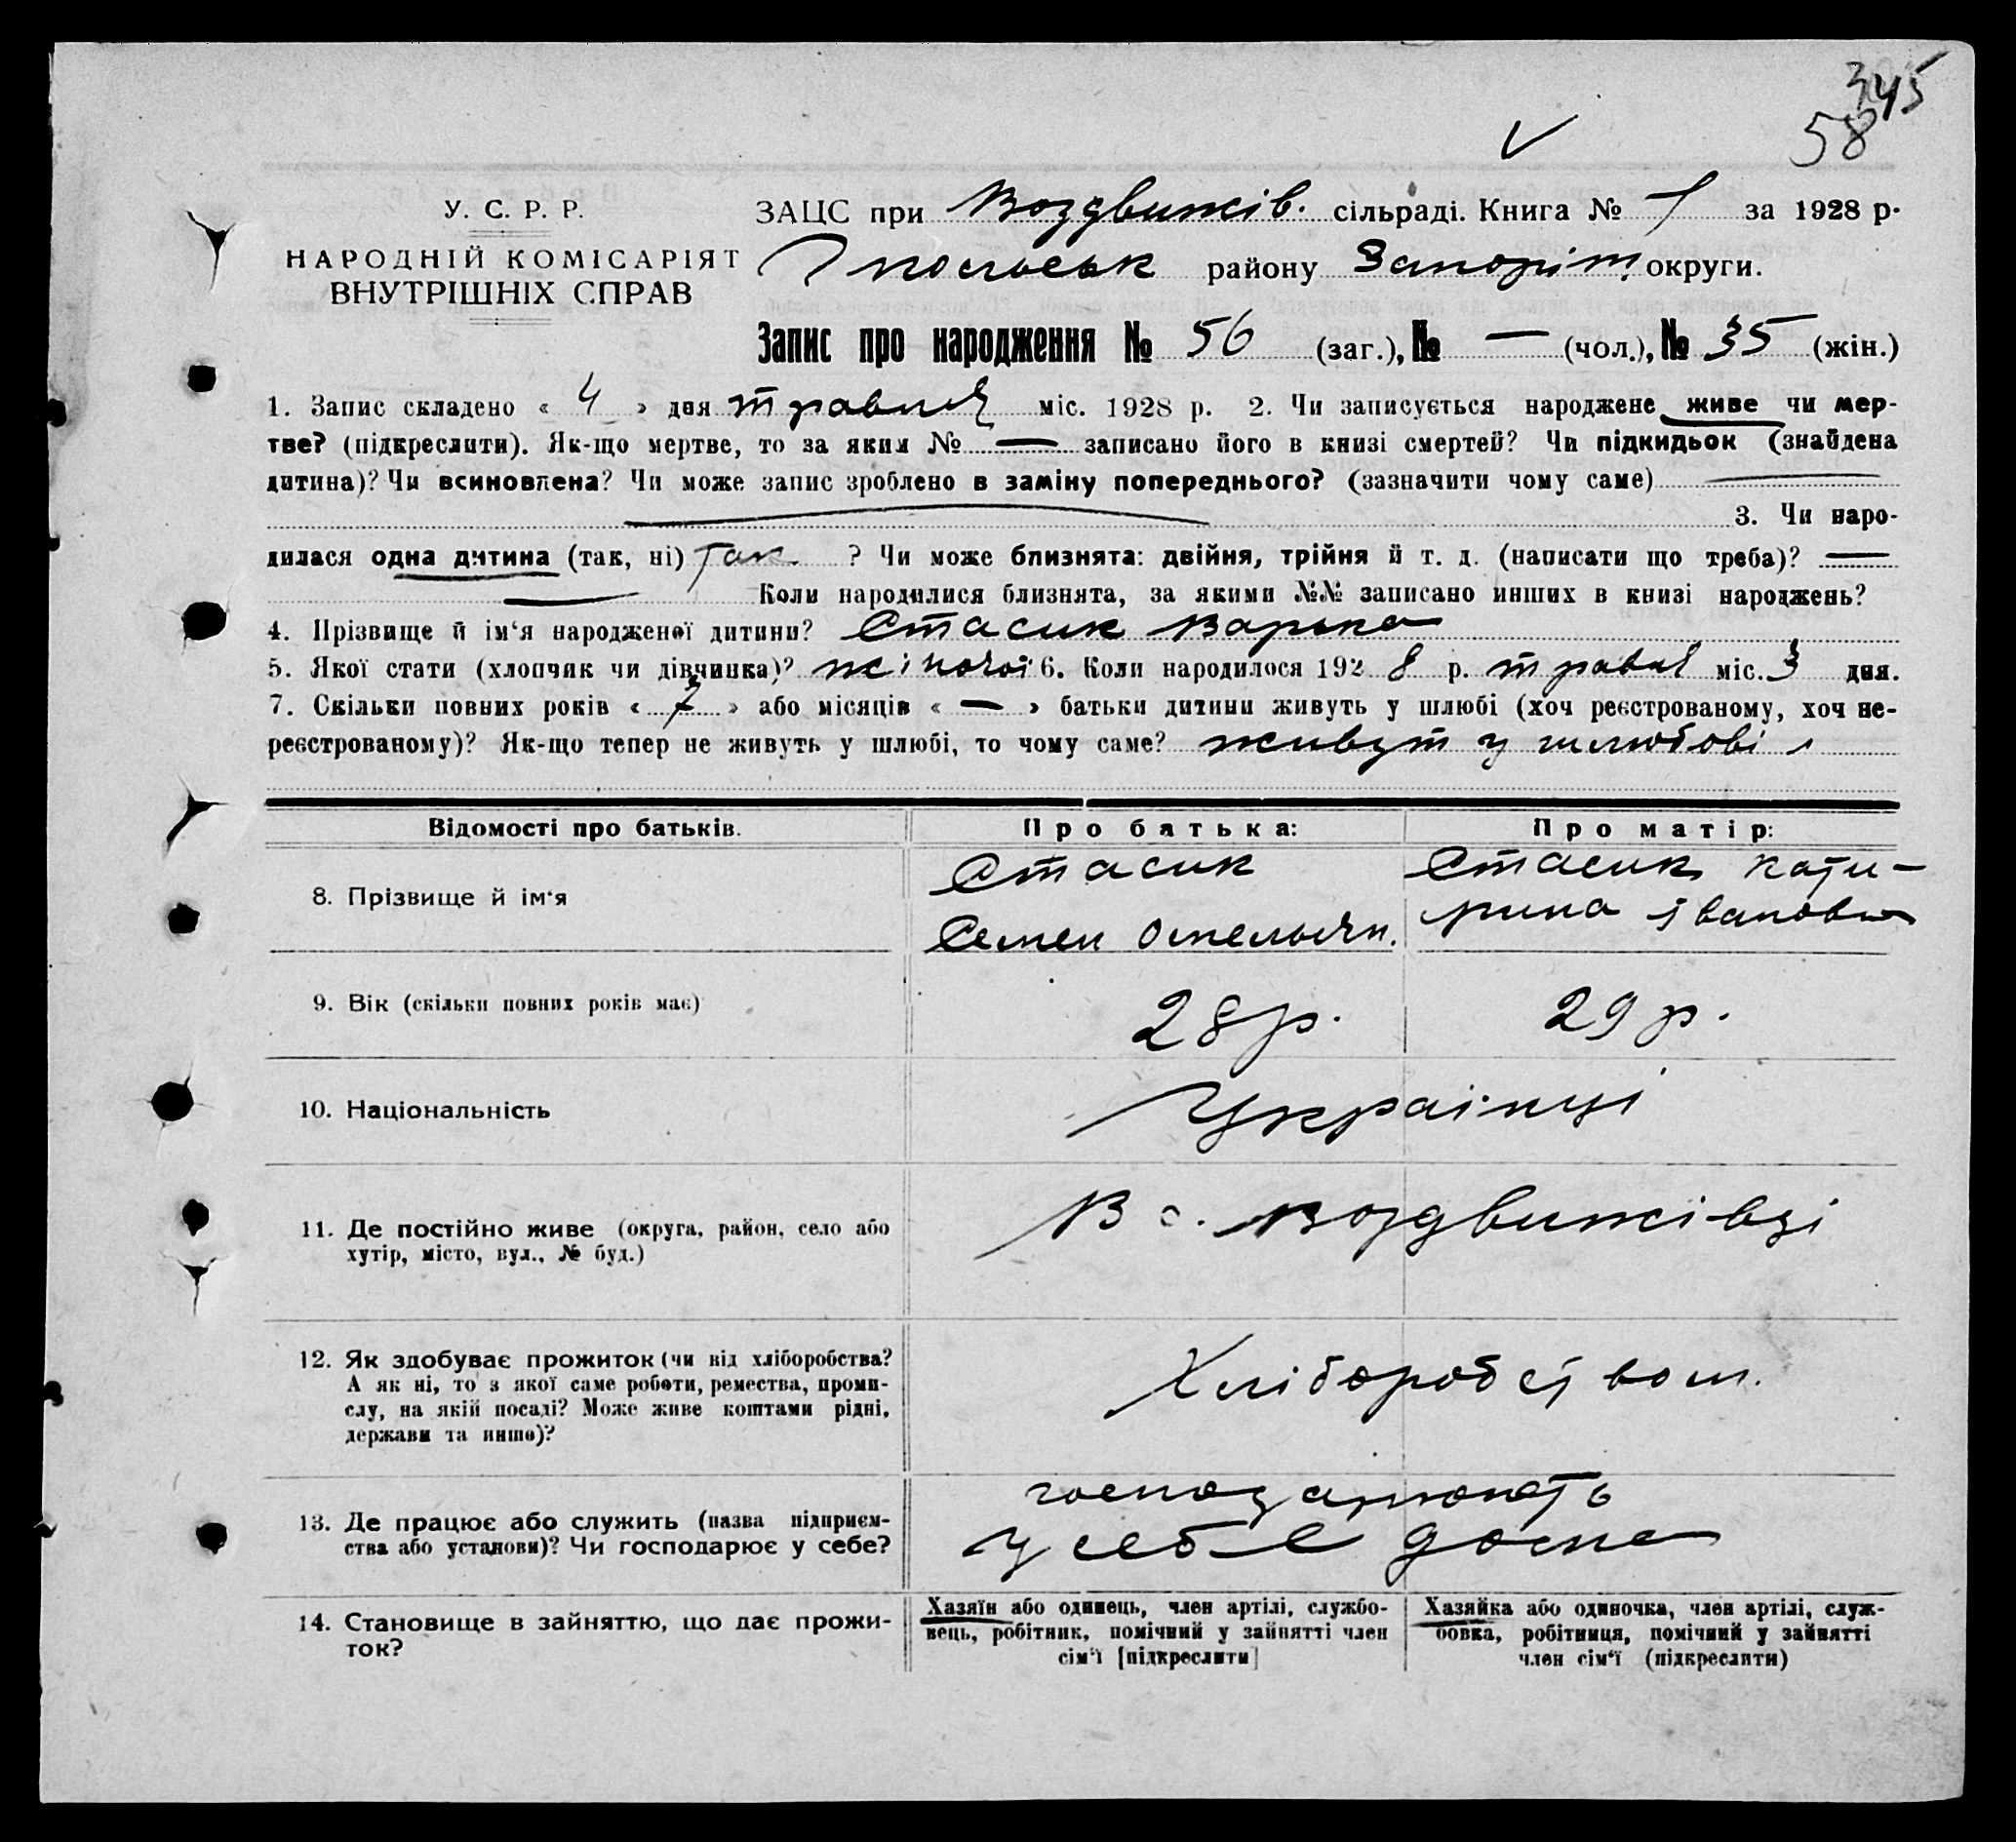 345
58
У. С. Р. Р.
НАРОДНІЙ КОМІСАРІЯТ
ВНУТРІШНІХ СПРАВ
ЗАЦС при Воздвижів. сільраді. Книга № 1 за 1928 р.
району Запоріж. округи.
Запис про народження № 56 (заг.), № — (чол.), № 35 (жін.)
1. Запис складено « 4 » дня травня міс. 1928 р. 2. Чи записується народжене живе чи мер-
тве? (підкреслити). Як-що мертве, то за яким № — записано його в книзі смертей? Чи підкидьок (знайдена
дитина)? Чи всиновлена? Чи може запис зроблено в заміну попереднього? (зазначити чому саме) —
— 3. Чи наро-
дилася одна дитина (так, ні) Так ? Чи може близнята: двійня, трійня й т. д. (написати що треба)? —
— Коли народилися близнята, за якими №№ записано инших в книзі народжень?
4. Прізвище й ім‘я народженої дитини? Стасик Варька
5. Якої стати (хлопчик чи дівчинка)? жіночої 6. Коли народилося 192 8 р. травня міс. 3 дня.
7. Скільки повних років « 7 » або місяців « — » батьки дитини живуть у шлюбі (хоч реєстрованому, хоч не-
реєстрованому)? Як-що тепер не живуть у шлюбі, то чому саме? живут у шлюбові
Відомості про батьків.
Про батька:
Про матір:
8. Прізвище й ім‘я
Стасик
Семен Омельян.
Стасик Кате-
рина Івановна
9. Вік (скільки повних років має)
28 р.
29 р.
10. Національність
Українці
11. Де постійно живе (округа, район, село або
хутір, місто, вул., № буд.)
В с. Воздвижівці
12. Як здобуває прожиток (чи від хліборобства?
А як ні, то з якої саме роботи, ремества, проми-
слу, на якій посаді? Може живе коштами рідні,
держави та инше)?
Хліборобством.
13. Де працює або служить (назва підприєм-
ства або установи)? Чи господарює у себе?
господарюють
у себе дома
14. Становище в зайняттю, що дає прожи-
ток?
Хазяїн або одинець, член артілі, службо-
вець, робітник, помічний у зайнятті член
сім‘ї [підкреслити]
Хазяйка або одиночка, член артілі, служ-
бовка, робітниця, помічний у зайнятті
член сім‘ї (підкреслити)